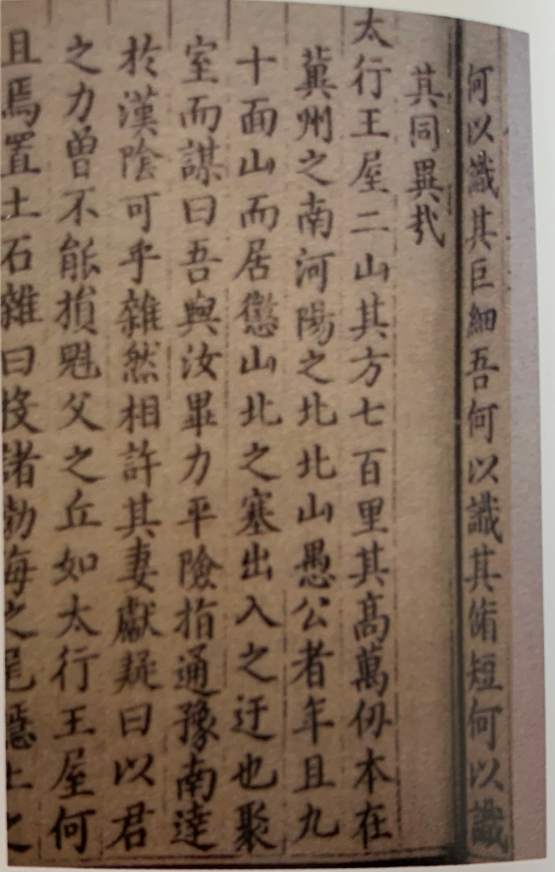 何以識其巨細吾何以識其脩短何以識
其同異哉
太行王屋二山其方七百里其高萬仞本在
冀州之南河陽之北北山愚公者年且九
十面山而居懲山北之塞出入之迂也聚
室而謀曰吾與汝畢力平險指通豫南達
於漢陰可乎雜然相許其妻獻疑曰以君
之力曾不能損魁父之丘如太行王屋何
且焉置土石雜曰投諸勃海之尾隱土之